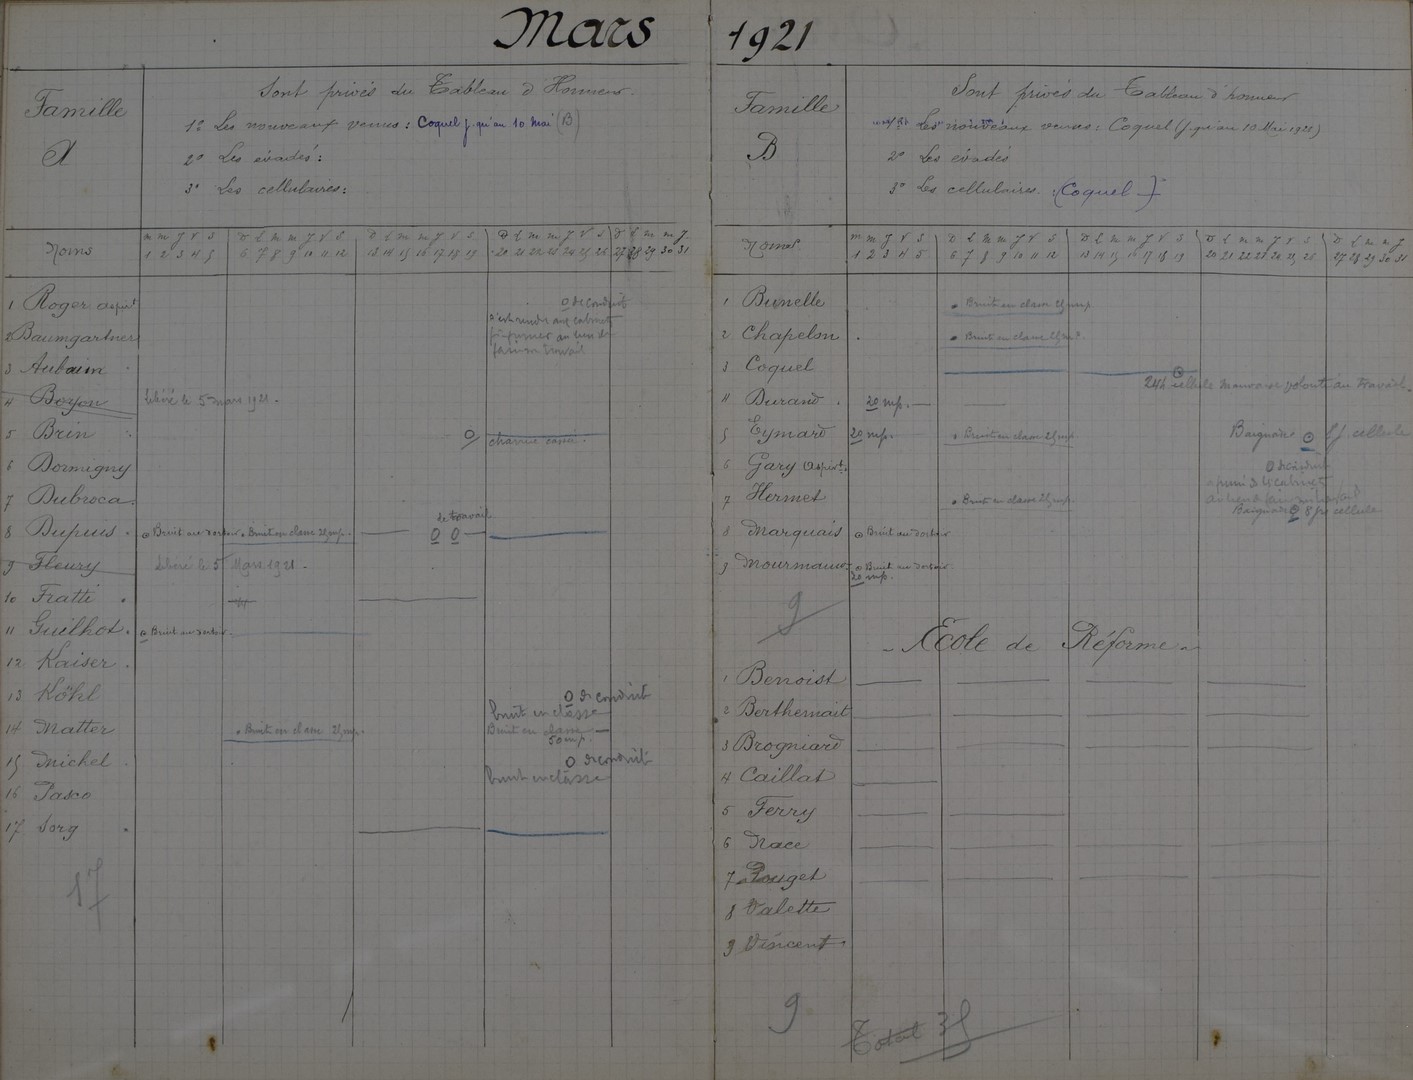 Mars 1921
Famille A
Sont privés du Tableau d'Honneur.
1º Les nouveaux venus : Coquel j. qu'au 10 mai (B)
2º Les évadés :
3º Les cellulaires :
Noms
m m J V S D L m m J V S D L m m J V S D L m m J V S D L m m J
1 2 3 4 5 6 7 8 9 10 11 12 13 14 15 16 17 18 19 20 21 22 23 24 25 26 27 28 29 30 31
1 Roger aspirt
O de conduit
2 Baumgartner
3 Aubain
4 Boyon Libéré le 5 mars 1921.
5 Brin O
6 Dormigny
7 Dubroca
de travail
8 Dupuis Bruit au dortoir Bruit en classe 25 mp. O O
9 Fleury Libéré le 5 Mars 1921.
10 Fratti
11 Guilhot Bruit au dortoir
12 Kaiser
13 Köhl O de conduit
bruit en classe
14 Matter Bruit en classe 25 mp. Bruit en classe
50 mp.
15 Michel O de conduit
bruit en classe
16 Pasco
17 Sorg
17
Famille B
Sont privés du Tableau d'honneur
Les nouveaux venus : Coquel (j. qu'au 10 Mai 1921)
2º Les évadés
3º Les cellulaires : (Coquel)
Noms
m m J V S D L m m J V S D L m m J V S D L m m J V S D L m m J
1 2 3 4 5 6 7 8 9 10 11 12 13 14 15 16 17 18 19 20 21 22 23 24 25 26 27 28 29 30 31
1 Bunelle Bruit en classe 25 mp.
2 Chapelon Bruit en classe 25 mp.
3 Coquel
24h cellule mauvaise volonté au travail.
4 Durand 20 mp.
5 Eymard 20 mp. Bruit en classe 25 mp. Baignade 8 j. cellule
6 Gary aspirt. O de conduit
7 Hermet Bruit en classe 25 mp.
Baignade 8 jrs cellule
8 Marquais Bruit au dortoir
9 Bruit au dortoir
20 mp.
9
Ecole de Réforme
1 Benoist
2 Berthemait
3 Brogniard
4 Caillat
5 Ferry
6 Nace
7 Pouget
8 Valette
9 Vincent
9
Total 35